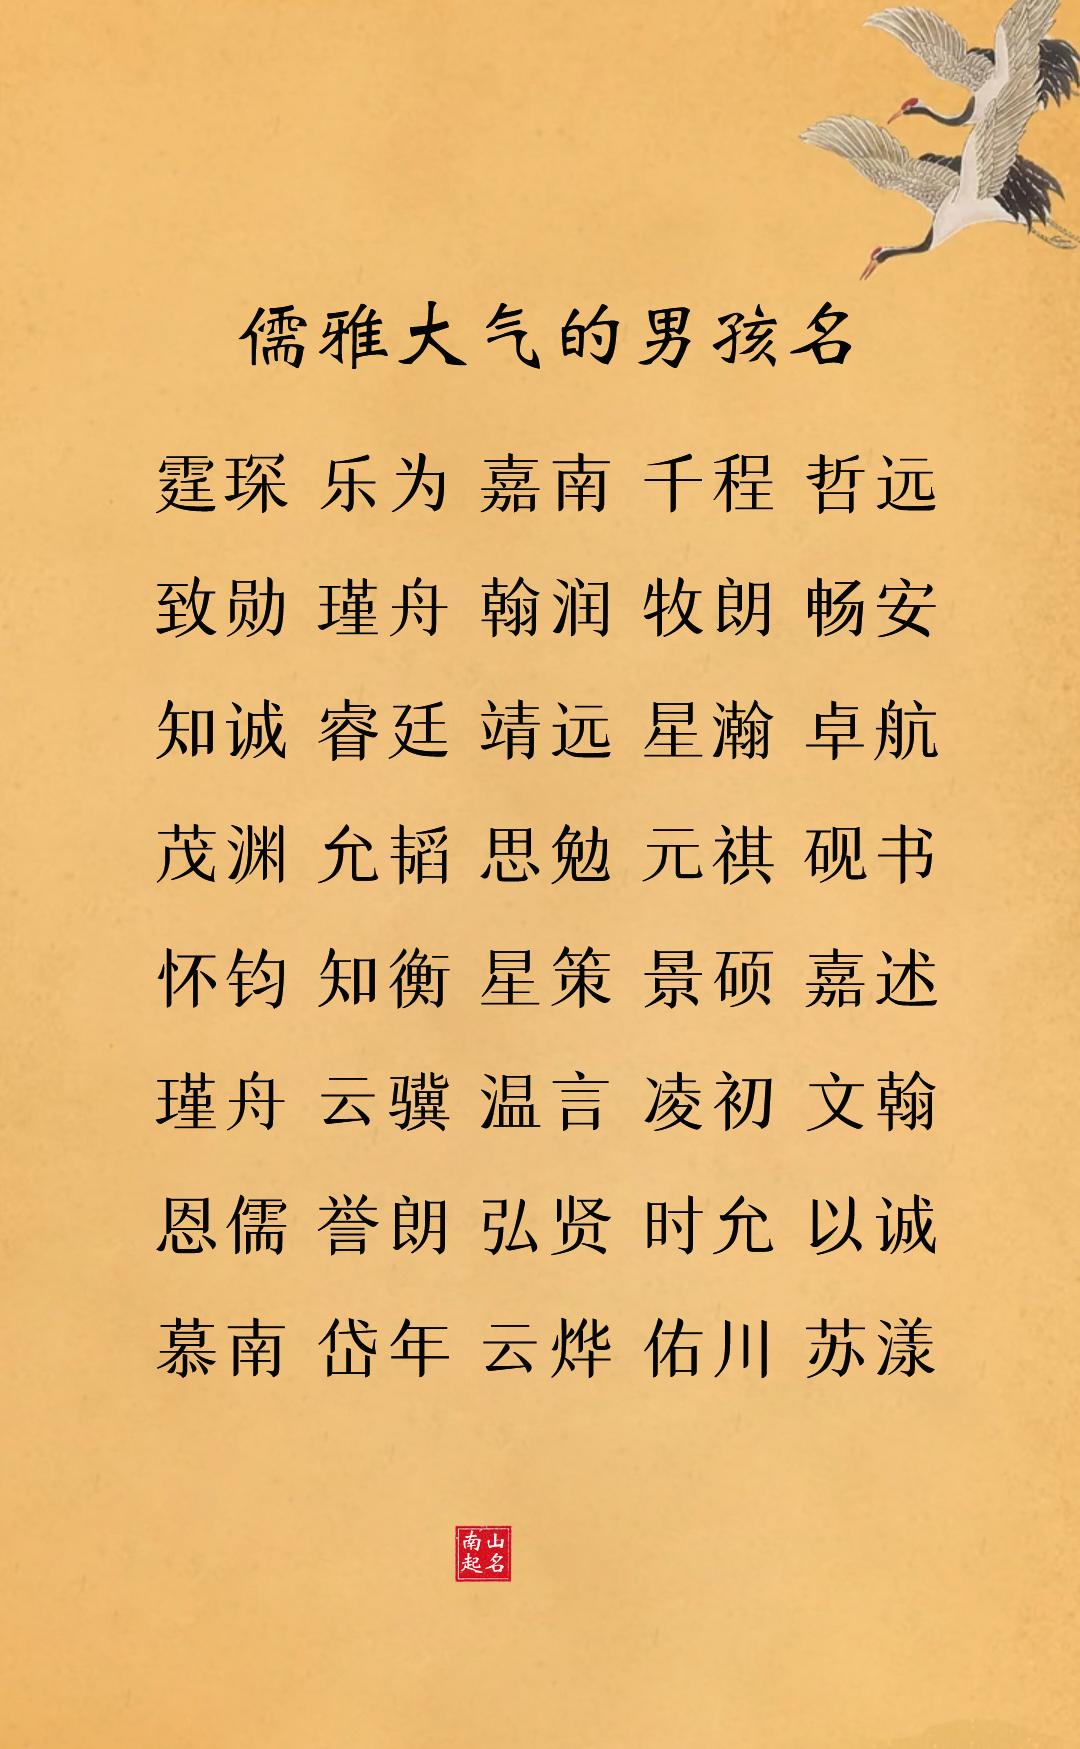 儒雅大气的男孩名
霆琛 乐为 嘉南 千程 哲远
致勋 瑾舟 翰润 牧朗 畅安
知诚 睿廷 靖远 星瀚 卓航
茂渊 允韬 思勉 元祺 砚书
怀钧 知衡 星策 景硕 嘉述
瑾舟 云骥 温言 凌初 文翰
恩儒 誉朗 弘贤 时允 以诚
慕南 岱年 云烨 佑川 苏漾
南山
起名